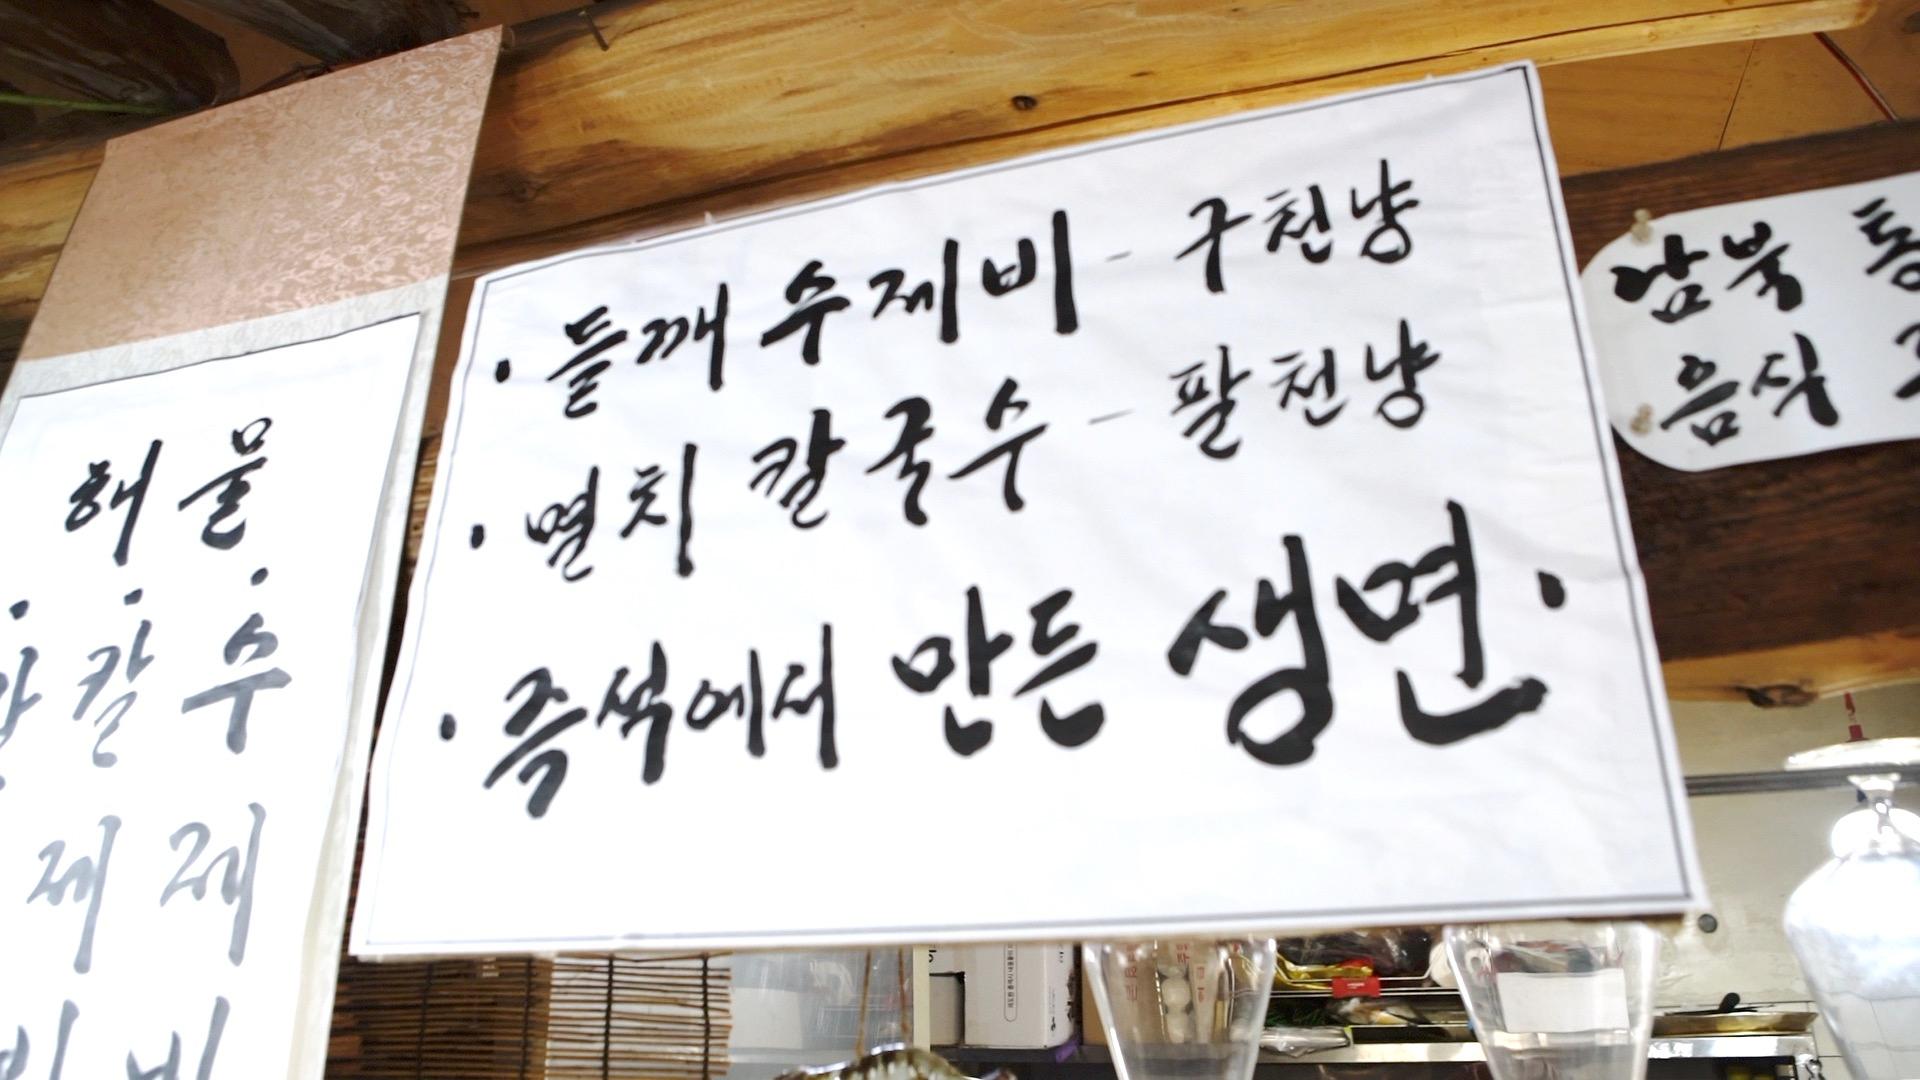 해물
칼 수
제 제
비 비
· 들깨 수제비 - 구천냥
· 멸치 칼국수 - 팔천냥
· 즉석에서 만든 생면 ·
남북
음식